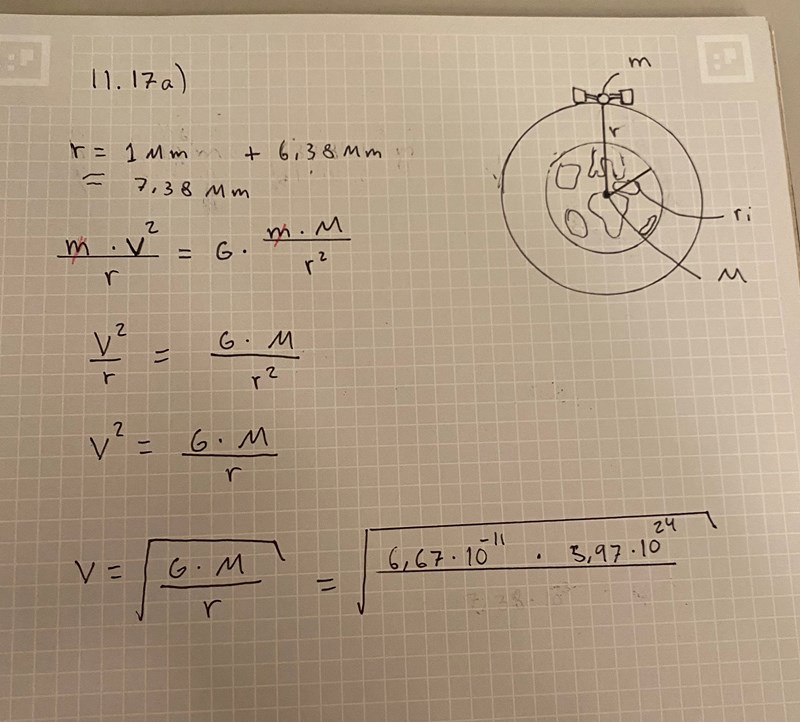 11.17a)
m
r = 1 Mm + 6,38 Mm
r
= 7,38 Mm
ri
m · v² / r = G · m · M / r²
M
v² / r = G · M / r²
v² = G · M / r
v = √(G · M / r) = √(6,67 · 10⁻¹¹ · 5,97 · 10²⁴